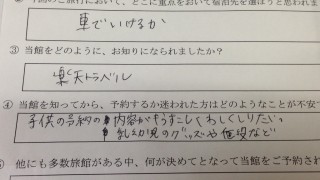 において宿泊先を選ぼうと思われま
車でいけるか
③ 当館をどのように、お知りになられましたか?
楽天トラベル
④ 当館を知ってから、予約するか迷われた方はどのようなことが不安で
子供の予約の内容がもうすこしくわしくしりたい。
乳幼児のグッズや備品など
他にも多数旅館がある中、何が決めてとなって当館をご予約され